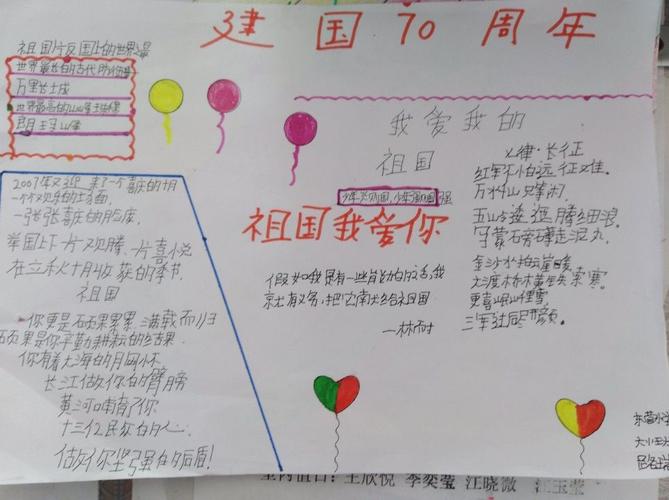 建国70周年
祖国版图上的世界最
世界最长的古代防御
万里长城
世界最高的山峰珠穆
朗玛峰
我爱我的
祖国
少年兴则国兴，少年强则国强
祖国我爱你
七律·长征
红军不怕远征难，
万水千山只等闲，
五岭逶迤腾细浪，
乌蒙磅礴走泥丸，
金沙水拍云崖暖，
大渡桥横铁索寒。
更喜岷山千里雪，
三军过后尽开颜。
假如我是有一些能力的话，我
就有义务把它献给祖国
—林耐
2007年又迎来了一个喜庆的十月
一个个欢乐的场面，
一张张喜庆的脸庞。
举国上下一片欢腾、一片喜悦
在立秋十月收获的季节.
祖国
你更是硕果累累，满载而归
硕果是你辛勤耕耘的结果
你有着大海的胸怀
长江做你的臂膀
黄河哺育了你
十三亿民众的心
做你坚强的后盾！
东营小学
王欣悦 李奕莹 汪晓微 汪玉莹